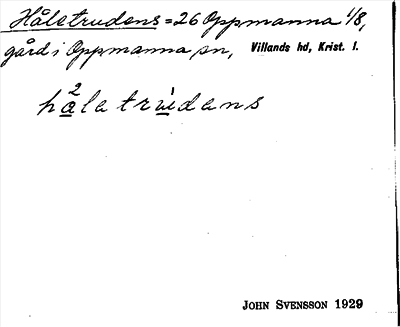 Hålatrudens = 26 Oppmanna 1/8,
gård i Oppmanna sn, Villands hd, Krist. l.
2
halatrudans
JOHN SVENSSON 1929